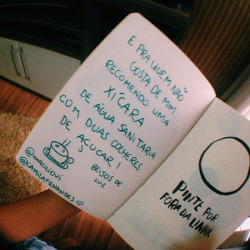 E PRA QUEM NÃO
GOSTA DE MIM
RECOMENDO UMA
XÍCARA
DE ÁGUA SANITÁRIA
COM DUAS COLHERES
DE AÇUCAR!
BEIJOS DE
LUZ
@KAMILAFERNANDES
PINTE POR
FORA DA LINHA